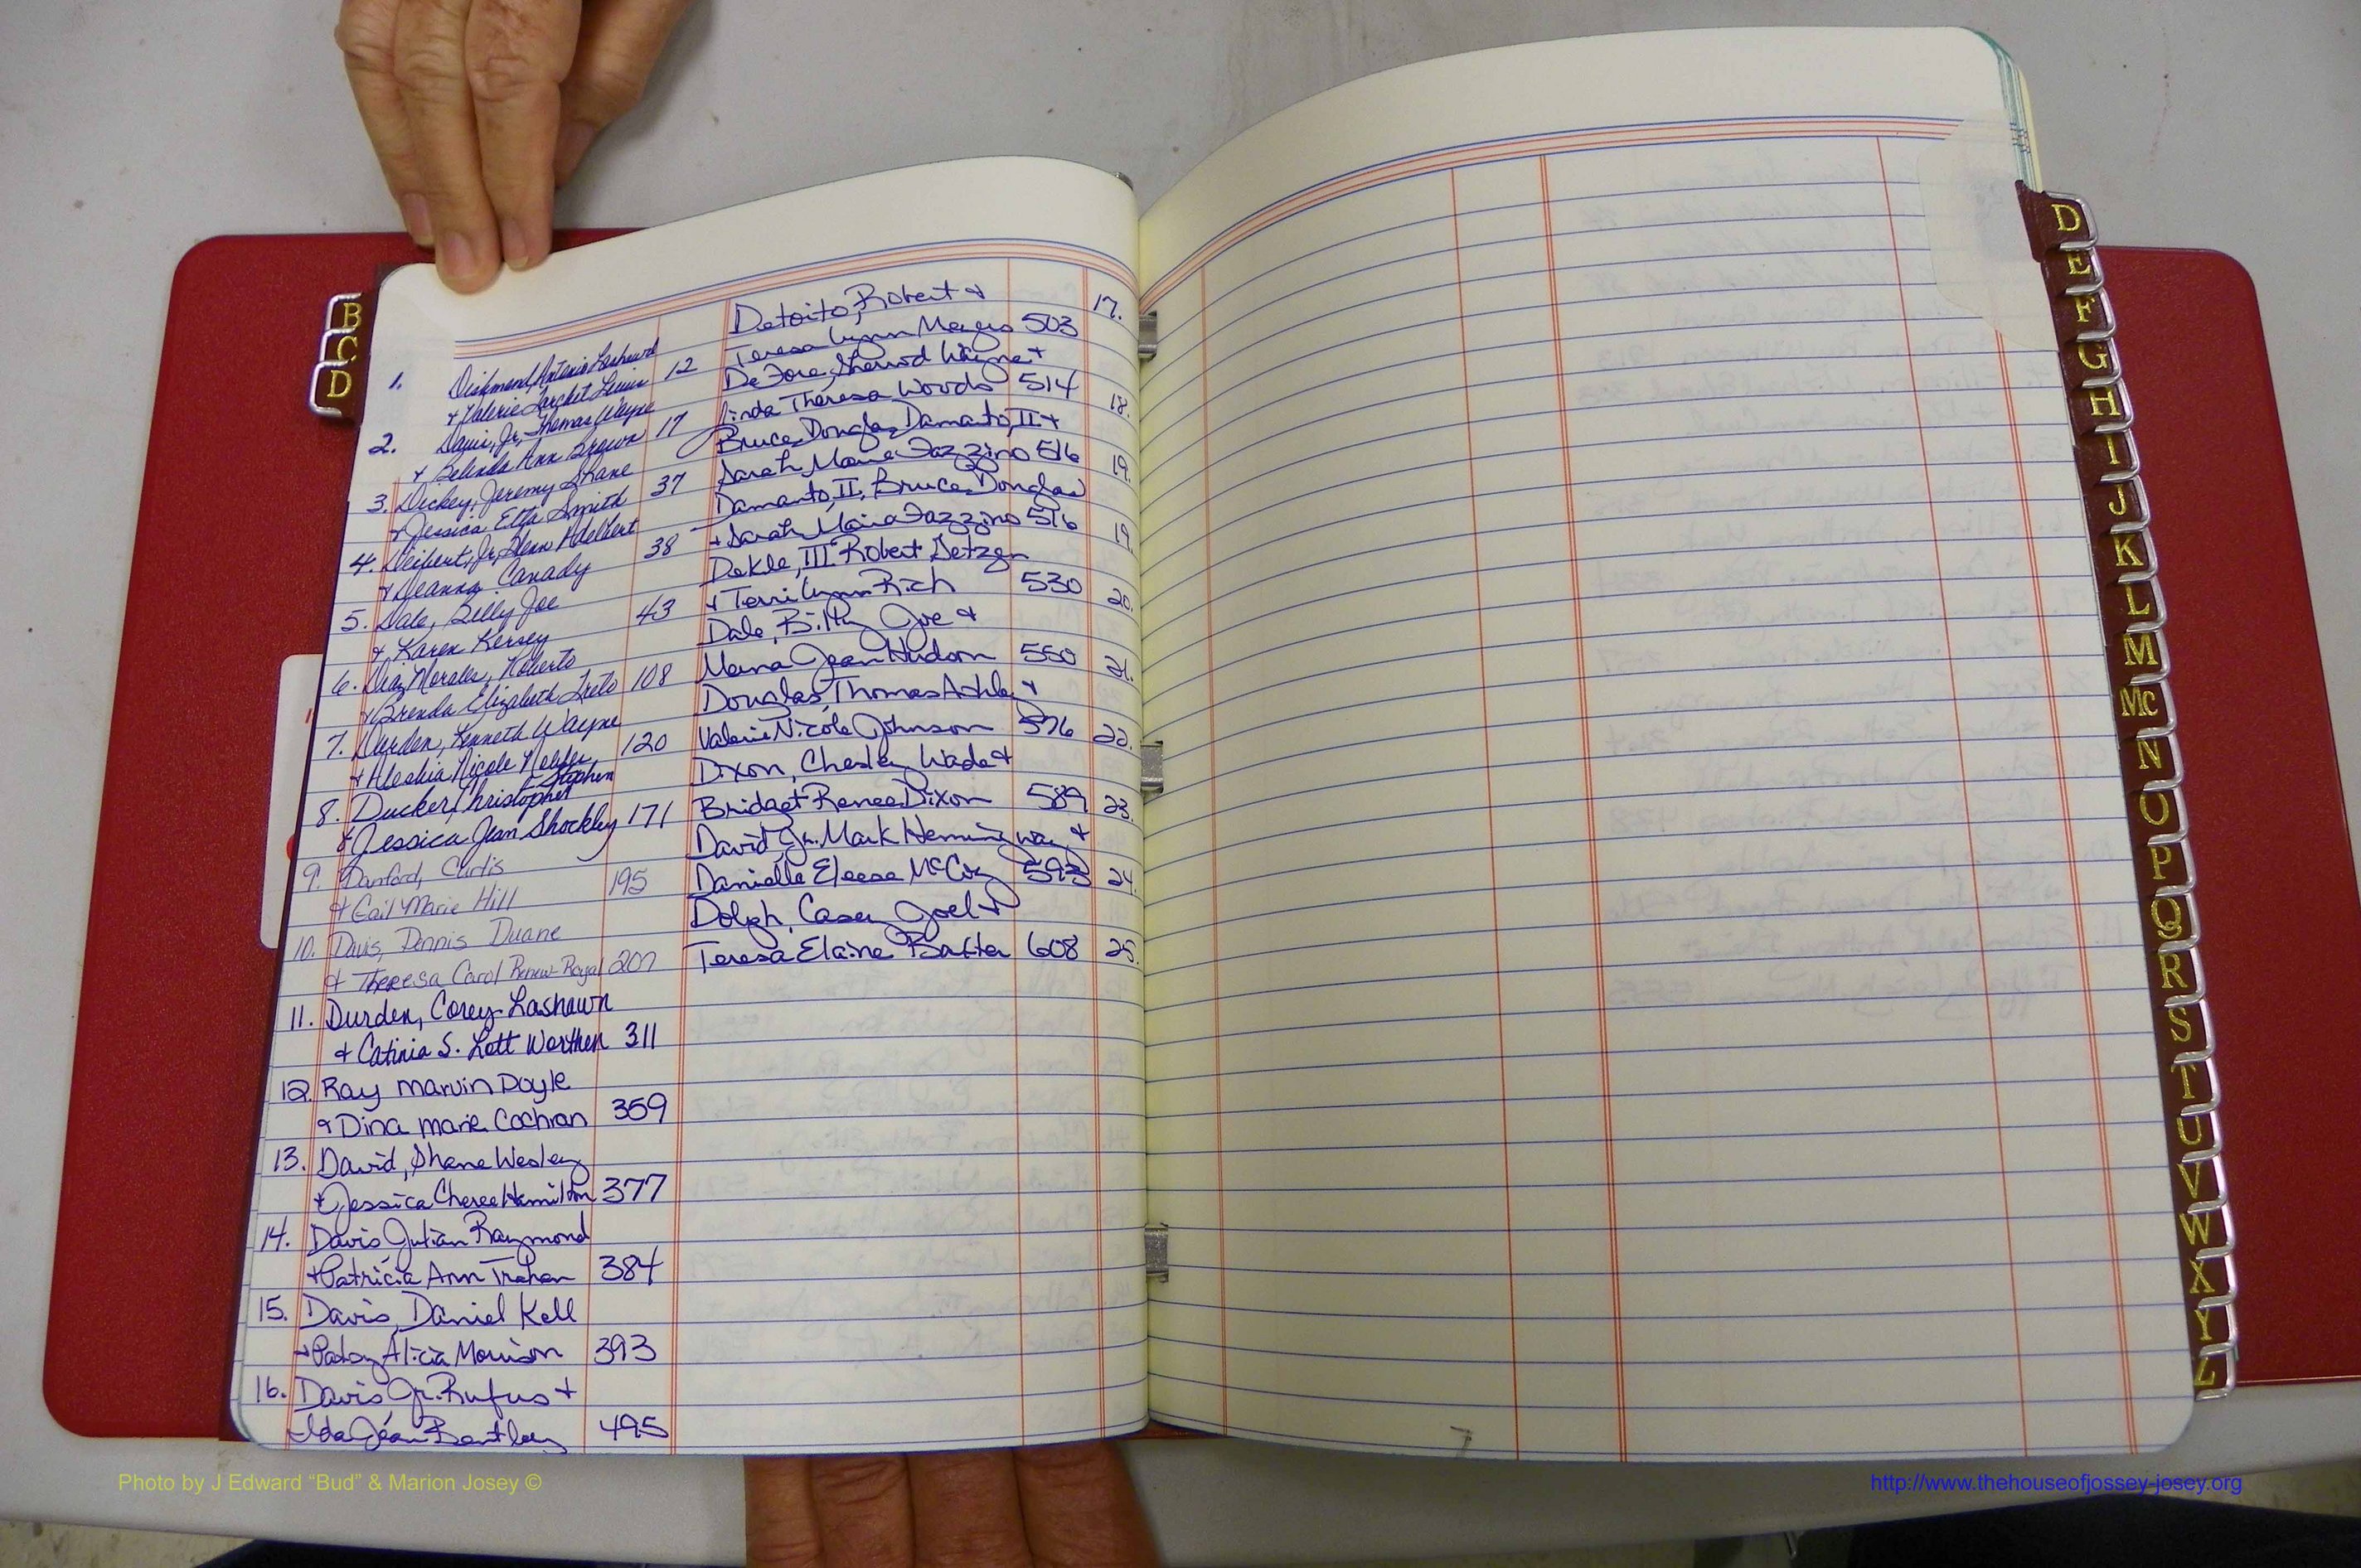 B
C
D
1. Dickmond, Antonio Lashawd
+ Valerie Larchet Lewis 12
2. Davis, Jr., Thomas Wayne
+ Belinda Ann Brown 17
3. Dickey, Jeremy Shane
+ Jessica Etta Smith 37
4. Deibert, Jr, Glenn Adelbert
+ Deanna Canady 38
5. Dale, Billy Joe
+ Karen Kersey 43
6. Diaz Morales, Roberto
+ Brenda Elizabeth 108
7. Durden, Kenneth Wayne
+ Aleshia Nicole 120
8. Ducker, Christopher Stephen
+ Jessica Jean Shockley 171
9. Danford, Curtis
+ Gail Marie Hill 195
10. Davis, Dennis Duane
+ Theresa Carol Renew-Royal 207
11. Durden, Corey Lashawn
+ Catinia S. Lott Worthen 311
12. Ray Marvin Doyle
+ Dina Marie Cochran 359
13. David, Shane Wesley
+ Jessica Cheree Hamilton 377
14. Davis Julian Raymond
+ Patricia Ann Trahan 384
15. Davis, Daniel Kell
+ Alicia Morrison 393
16. Davis Jr. Rufus +
Ida Jean Bentley 495
Detoito, Robert + 17.
Teresa Lynn 503
DeFore, Sherrod Wayne +
Linda Theresa Woods 514 18.
Bruce Douglas Damanto, II +
Sarah Maria Fazzino 516 19.
Damanto, II, Bruce Douglas
+ Sarah Maria Fazzino 516 19.
DeKle, III Robert Getzen
+ Terri Lynn Rich 530 20.
Dale, Billy Joe +
Jean Hudson 550 21.
Douglas, Thomas Ashley +
Valerie Nicole Johnson 576 22.
Dixon, Chesley Wade +
Bridget Renee Dixon 589 23.
David Jr. Mark Hemingway +
Danielle Eleese McCoy 593 24.
Dolph, Casey Joel +
Teresa Elaine Baxter 608 25.
D
E
F
G
H
I
J
K
L
M
Mc
N
O
P
Q
R
S
T
U
V
W
X
Y
Z
Photo by J Edward “Bud” & Marion Josey ©
http://www.thehouseofjossey-josey.org